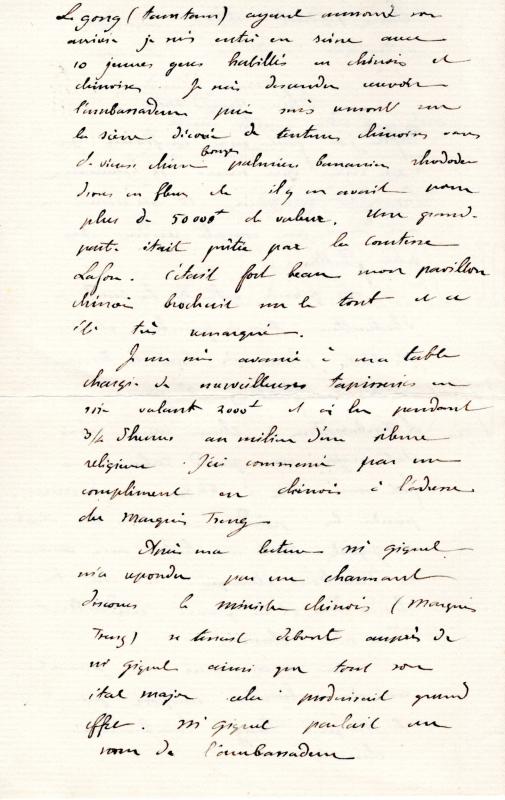 Le gong (tamtam) ayant annoncé son
arrivée je suis entré en scène avec
10 jeunes gens habillés en chinois et
chinoises. Je suis descendu recevoir
l'ambassadeur puis suis remonté sur
la scène décorée de tentures chinoises vases
de vieux chine bronzes palmiers bananiers rhododen
drons en fleur etc il y en avait pour
plus de 50000 f de valeur. Une grand-
partie était prêtée par la Comtesse
Lafon. C'était fort beau mon pavillon
chinois brochait sur le tout et a
été très remarqué.
Je me suis avancé à ma table
chargée de merveilleuses tapisseries en
soie valant 2000 f et ai lu pendant
3/4 d'heures au milieu d'un silence
religieux. J'ai commencé par un
compliment en chinois à l'adresse
du Marquis Tseng.
Après ma lecture Mr Giquel
m'a répondu par un charmant
discours le ministre chinois (Marquis
Tseng) se tenant debout auprès de
Mr Giquel ainsi que tout son
état major cela produisait grand
effet. Mr Giquel parlait au
nom de l'ambassadeur